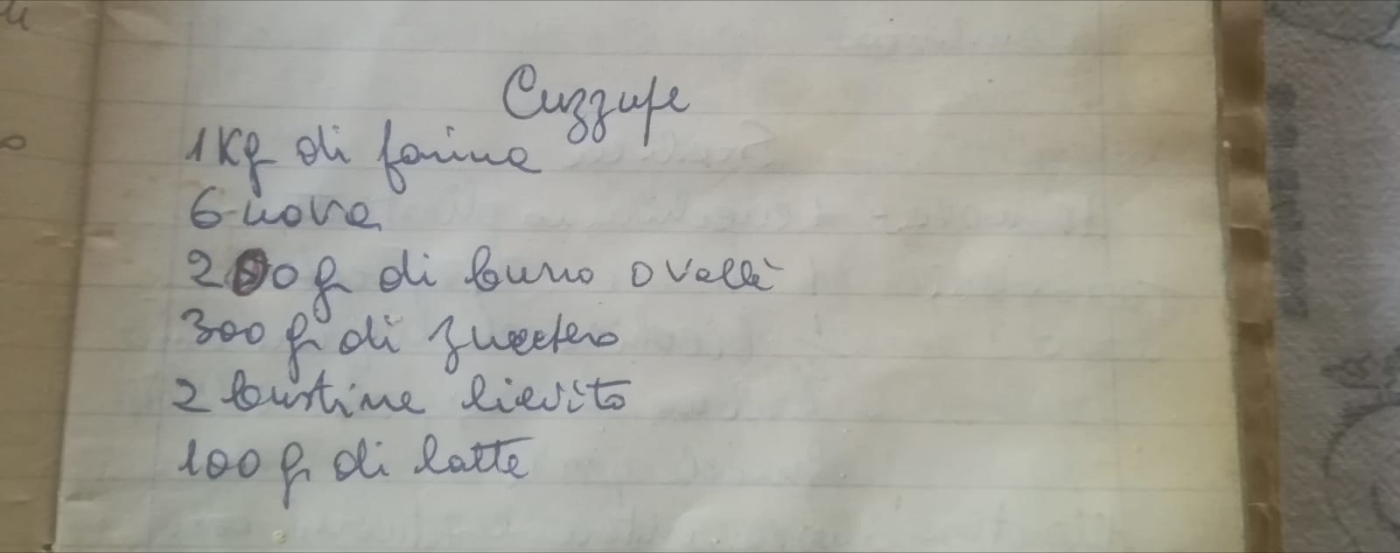 Cuzzupe
1Kg di farina
6 uova
200 g di burro o Vallè
300 g di zucchero
2 bustine lievito
100 g di latte